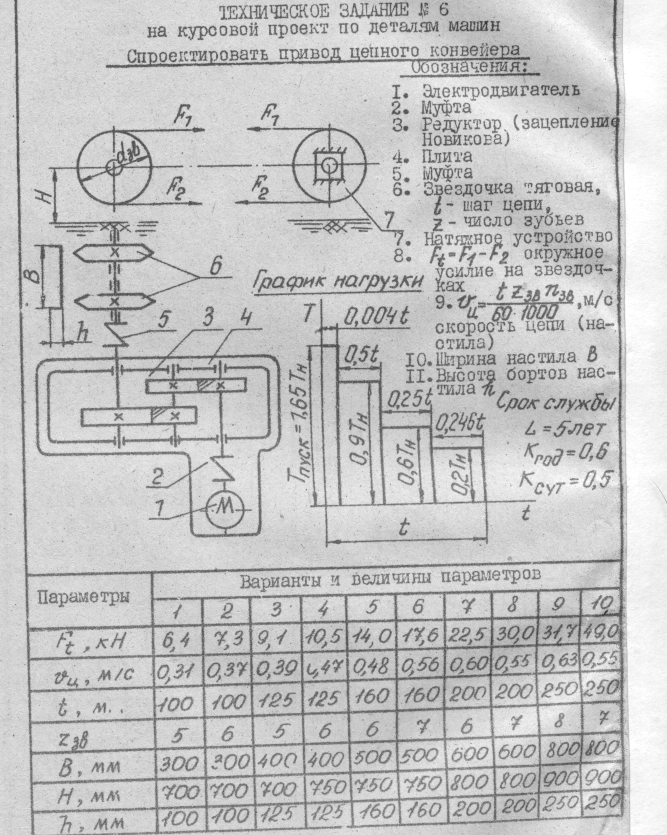 ТЕХНИЧЕСКОЕ ЗАДАНИЕ № 6
на курсовой проект по деталям машин
Спроектировать привод цепного конвейера
Обозначения:
1. Электродвигатель
2. Муфта
3. Редуктор (зацепление
Новикова)
4. Плита
5. Муфта
6. Звездочка тяговая,
t - шаг цепи,
z - число зубьев
7. Натяжное устройство
8. Ft=F1-F2 окружное
усилие на звездоч-
ках
9. vц = t zзв nзв / 60·1000, м/с
скорость цепи (на-
стила)
10. Ширина настила B
11. Высота бортов нас-
тила h
F1
F1
dзв
F2
F2
H
7
B
6
h
5
3
4
2
1
М
График нагрузки
T
0,004t
0,5t
0,25t
0,246t
Tпуск = 1,65Tн
0,9Tн
0,6Tн
0,2Tн
t
t
Срок службы
L = 5 лет
Kгод = 0,6
Kсут = 0,5
Параметры
Варианты и величины параметров
1 2 3 4 5 6 7 8 9 10
Ft, кН 6,4 7,3 9,1 10,5 14,0 17,6 22,5 30,0 31,7 49,0
vц, м/с 0,31 0,37 0,39 0,47 0,48 0,56 0,60 0,55 0,63 0,55
t, м.. 100 100 125 125 160 160 200 200 250 250
zзв 5 6 5 6 6 7 6 7 8 7
B, мм 300 300 400 400 500 500 600 600 800 800
H, мм 700 700 700 750 750 750 800 800 900 900
h, мм 100 100 125 125 160 160 200 200 250 250